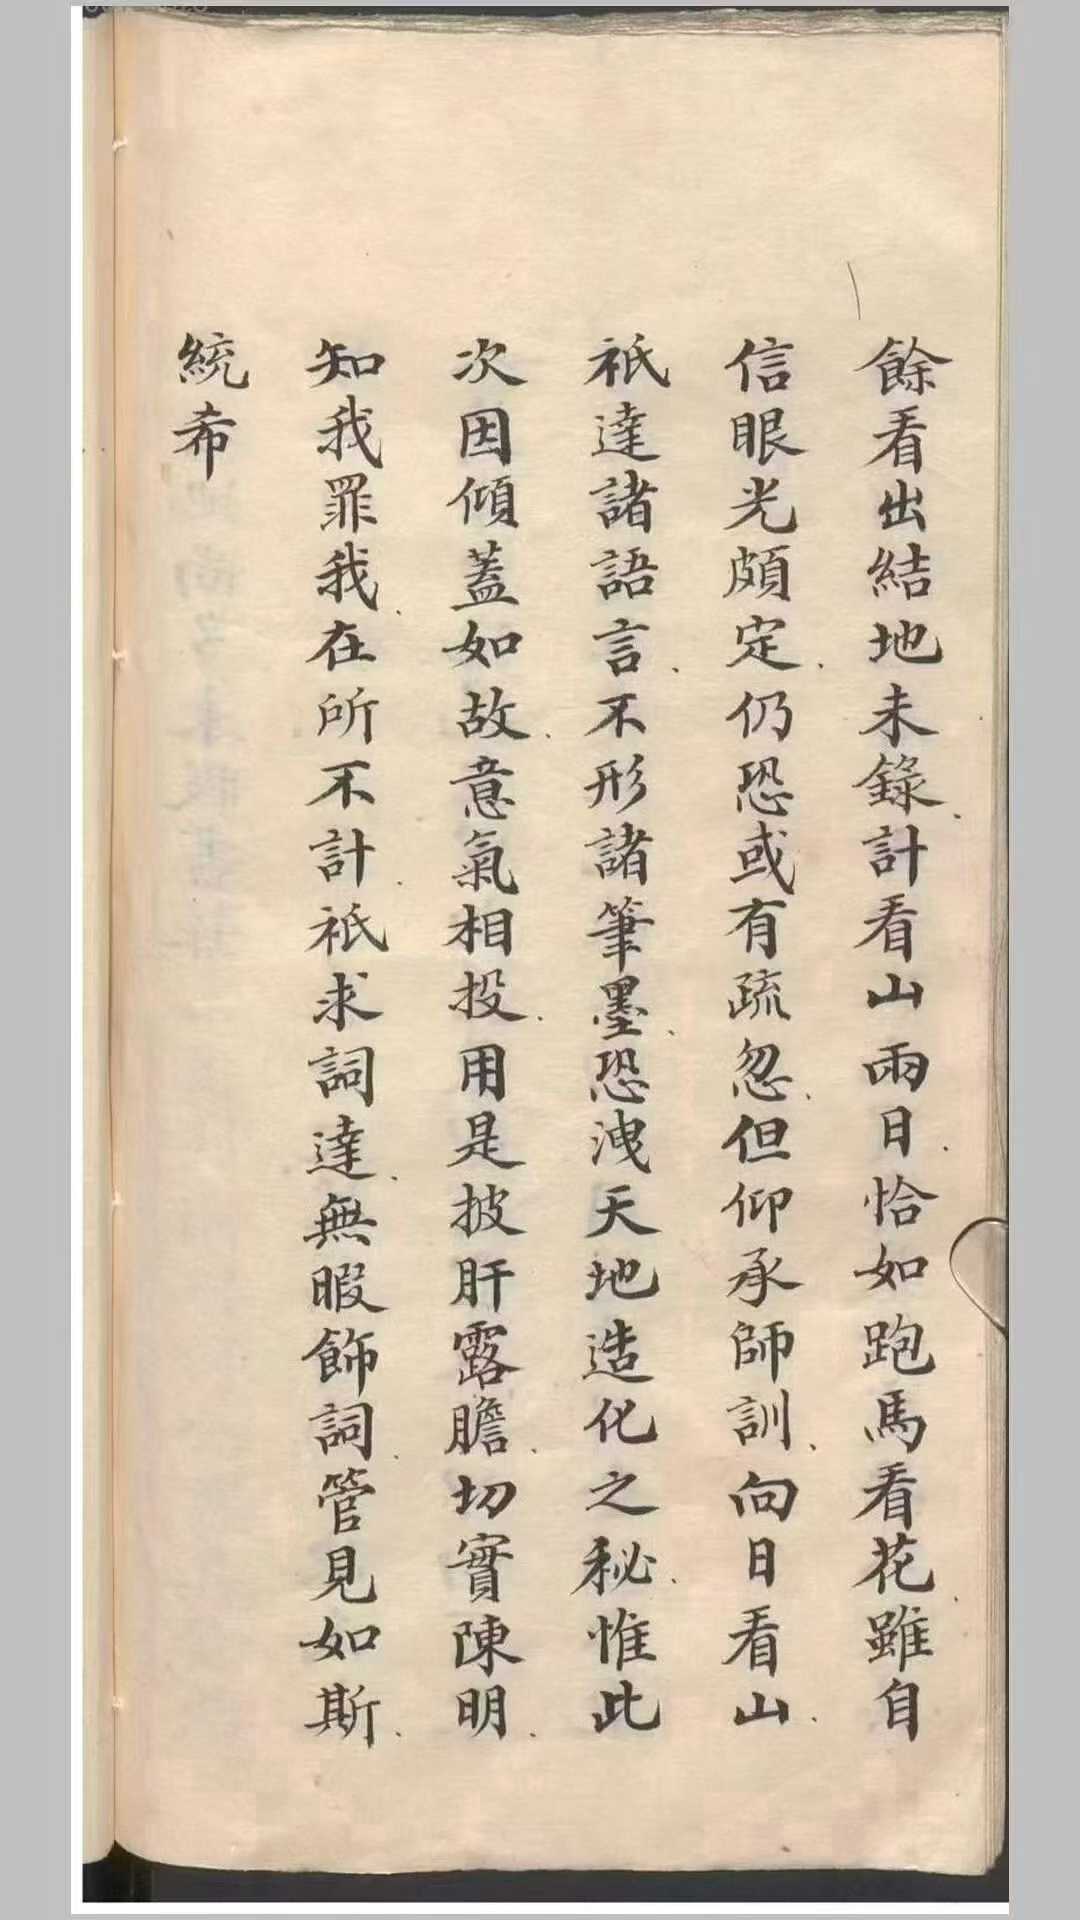 餘看出結地未錄計看山兩日恰如跑馬看花雖自
信眼光頗定仍恐或有疏忽但仰承師訓向日看山
祇達諸語言不形諸筆墨恐洩天地造化之秘惟此
次因傾蓋如故意氣相投用是披肝露膽切實陳明
知我罪我在所不計祇求詞達無暇飾詞管見如斯
統希